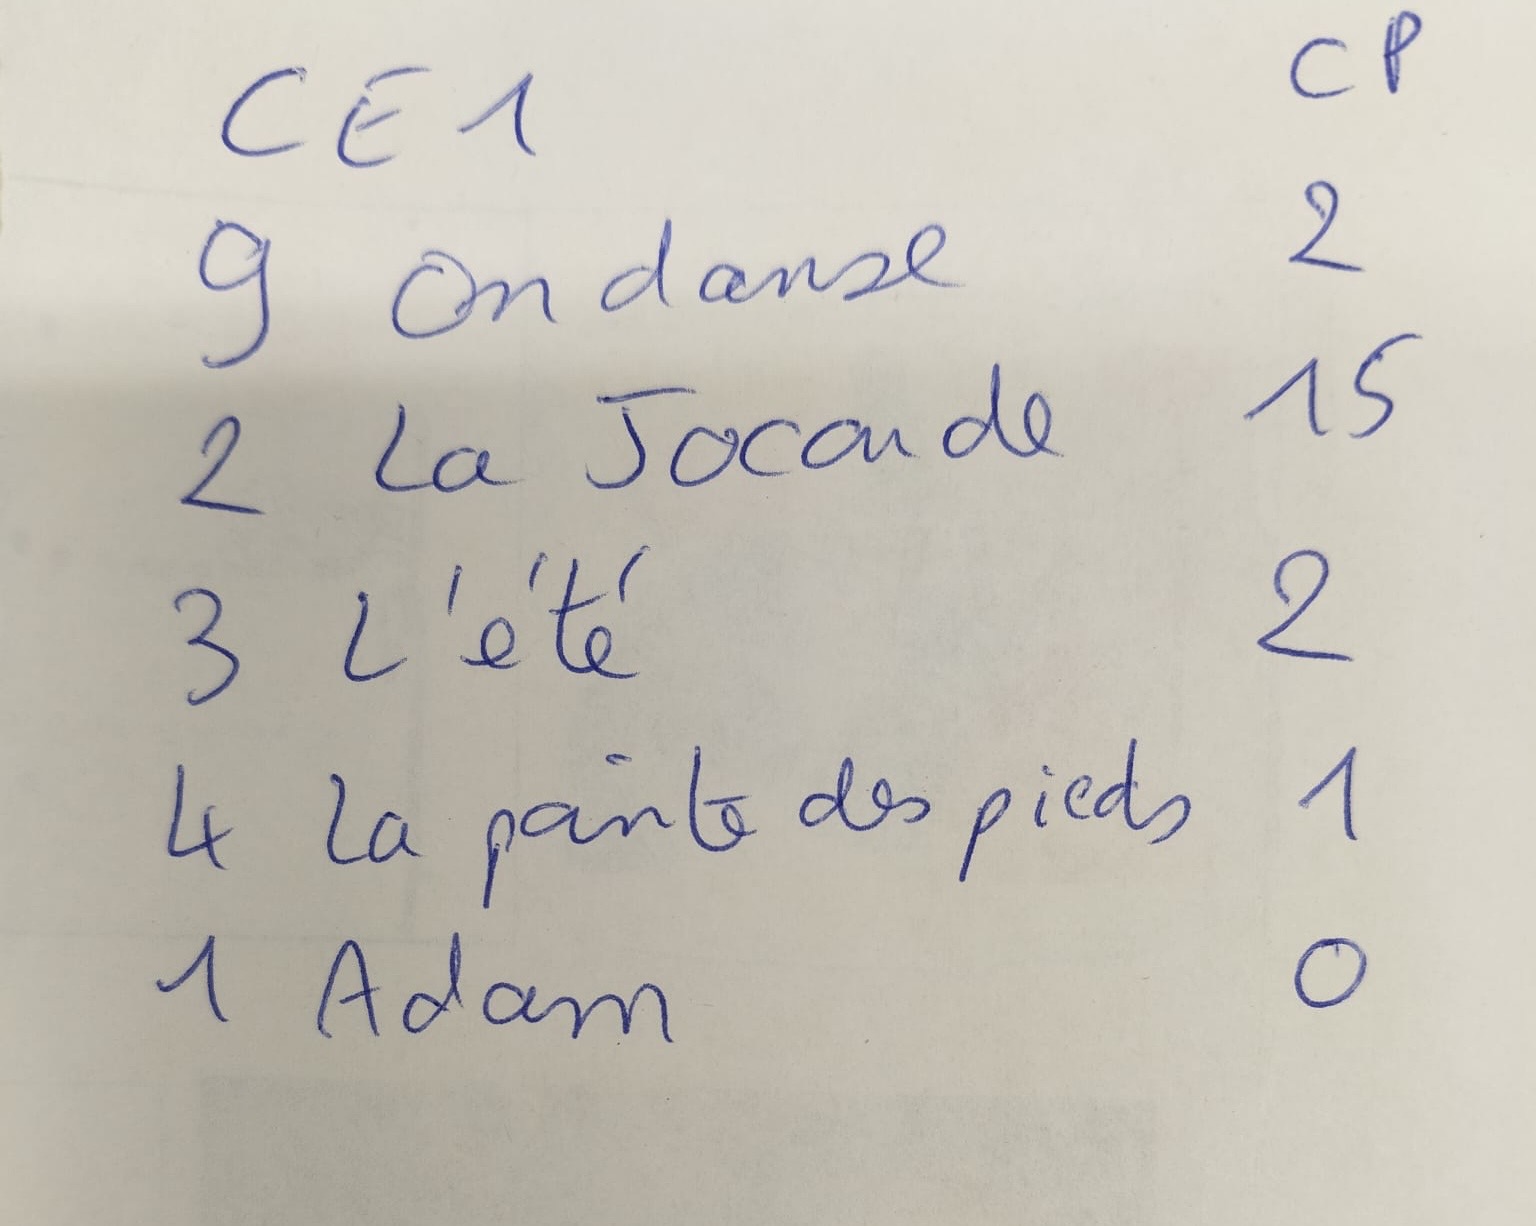 CE1 CP
9 On danse 2
2 La Joconde 15
3 L'été 2
4 La pointe des pieds 1
1 Adam 0